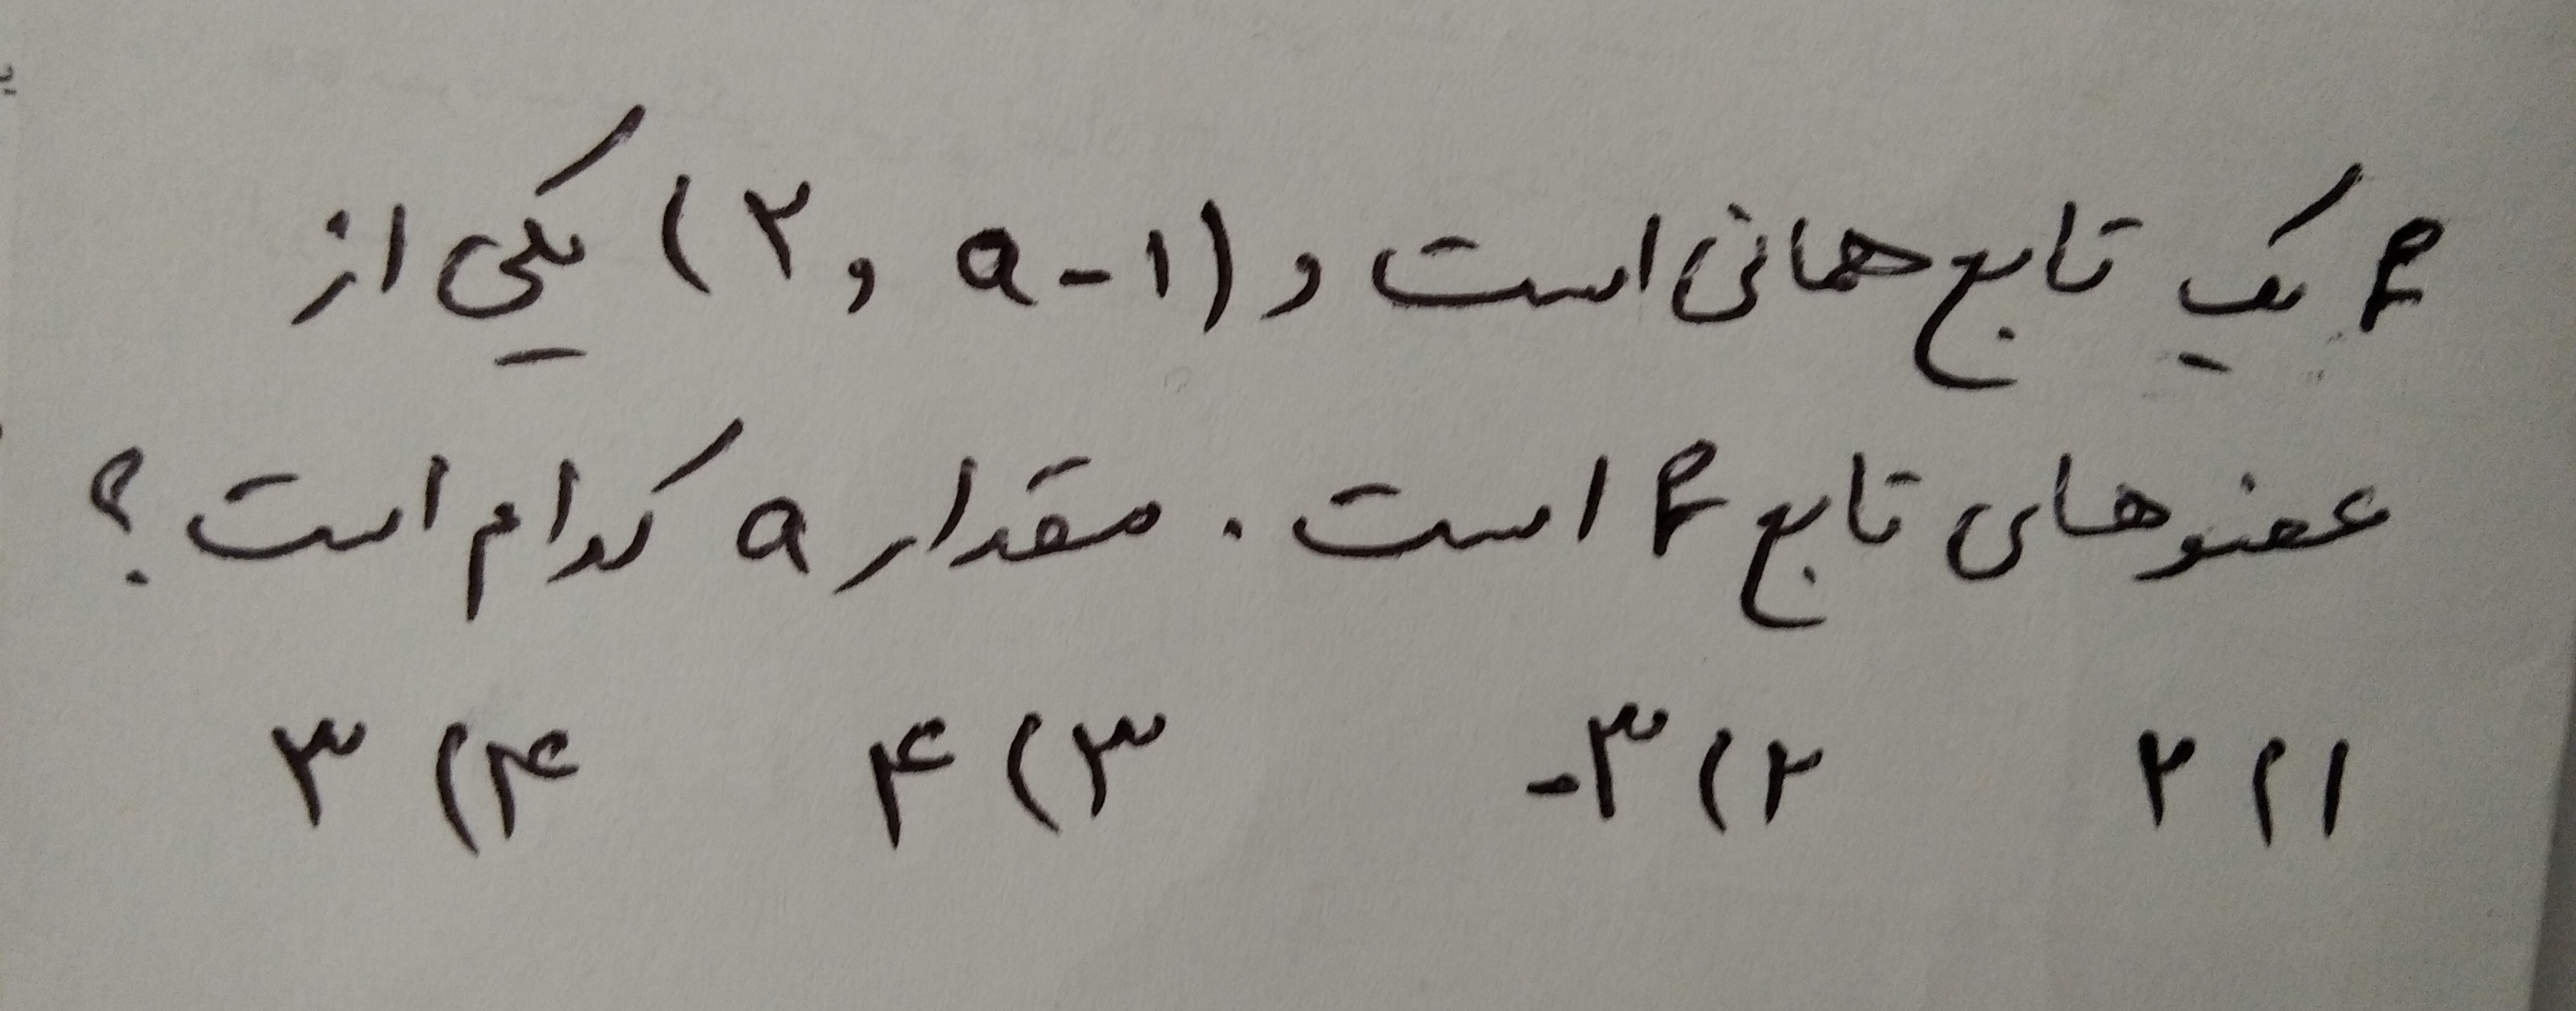 f یک تابع همانی است و (۲, a-۱) یکی از
عضوهای تابع f است. مقدار a کدام است؟
۱) ۲ ۲) -۳ ۳) ۴ ۴) ۳